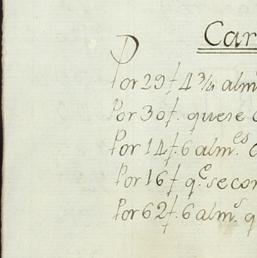 Car
Por 29 f. 4 3/4 alm
Por 30 f. quese
Por 14 f. 6 alm.es
Por 16 f. q.e se con
Por 62 f. 6 alm.s q